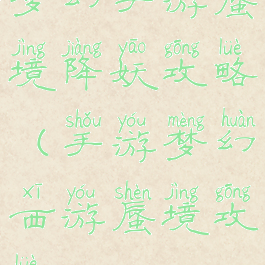 游蜃
jìng jiàng yāo gōng lüè
境降妖攻略
shǒu yóu mèng huàn
（手游梦幻
xī yóu shèn jìng gōng
西游蜃境攻
lüè